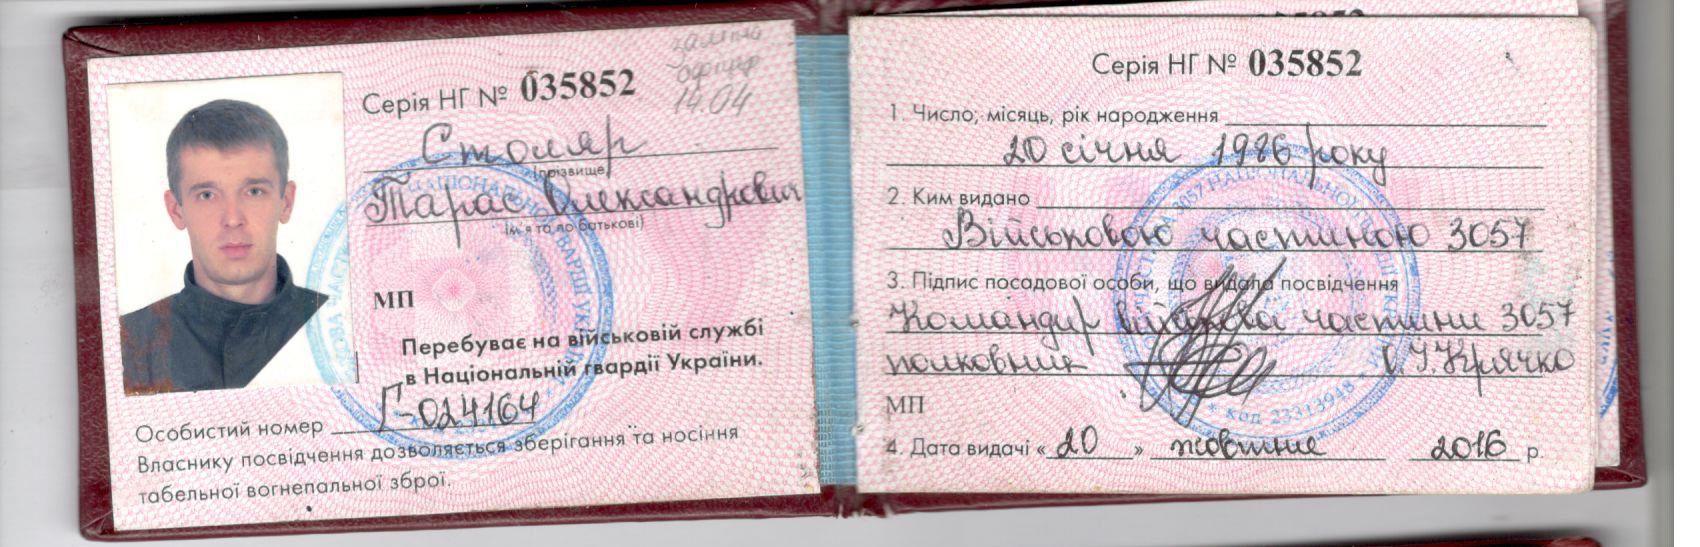 Серія НГ № 035852
14.04
Столяр
(прізвище)
Тарас Олександрович
(ім'я та по батькові)
МП
Перебуває на військовій службі
в Національній гвардії України.
Особистий номер Г-024164
Власнику посвідчення дозволяється зберігання та носіння
табельної вогнепальної зброї.
Серія НГ № 035852
1. Число, місяць, рік народження
20 січня 1986 року
2. Ким видано
Військовою частиною 3057
3. Підпис посадової особи, що видала посвідчення
Командир військова частини 3057
полковник С.І.Крячко
МП
4. Дата видачі «20» жовтня 2016 р.
* код 23313948 *